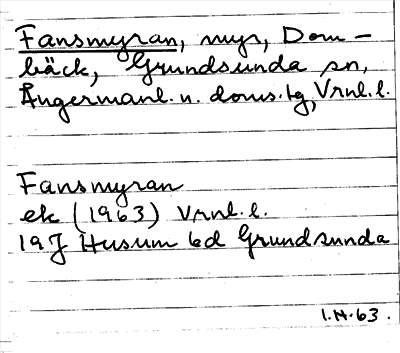 Fansmyran, myr, Dom-
bäck, Grundsunda sn,
Ångermanl. n. doms.tg, Vrnl. l.
Fansmyran
ek (1963) Vrnl. l.
19J Husum bd Grundsunda
I.N.63.